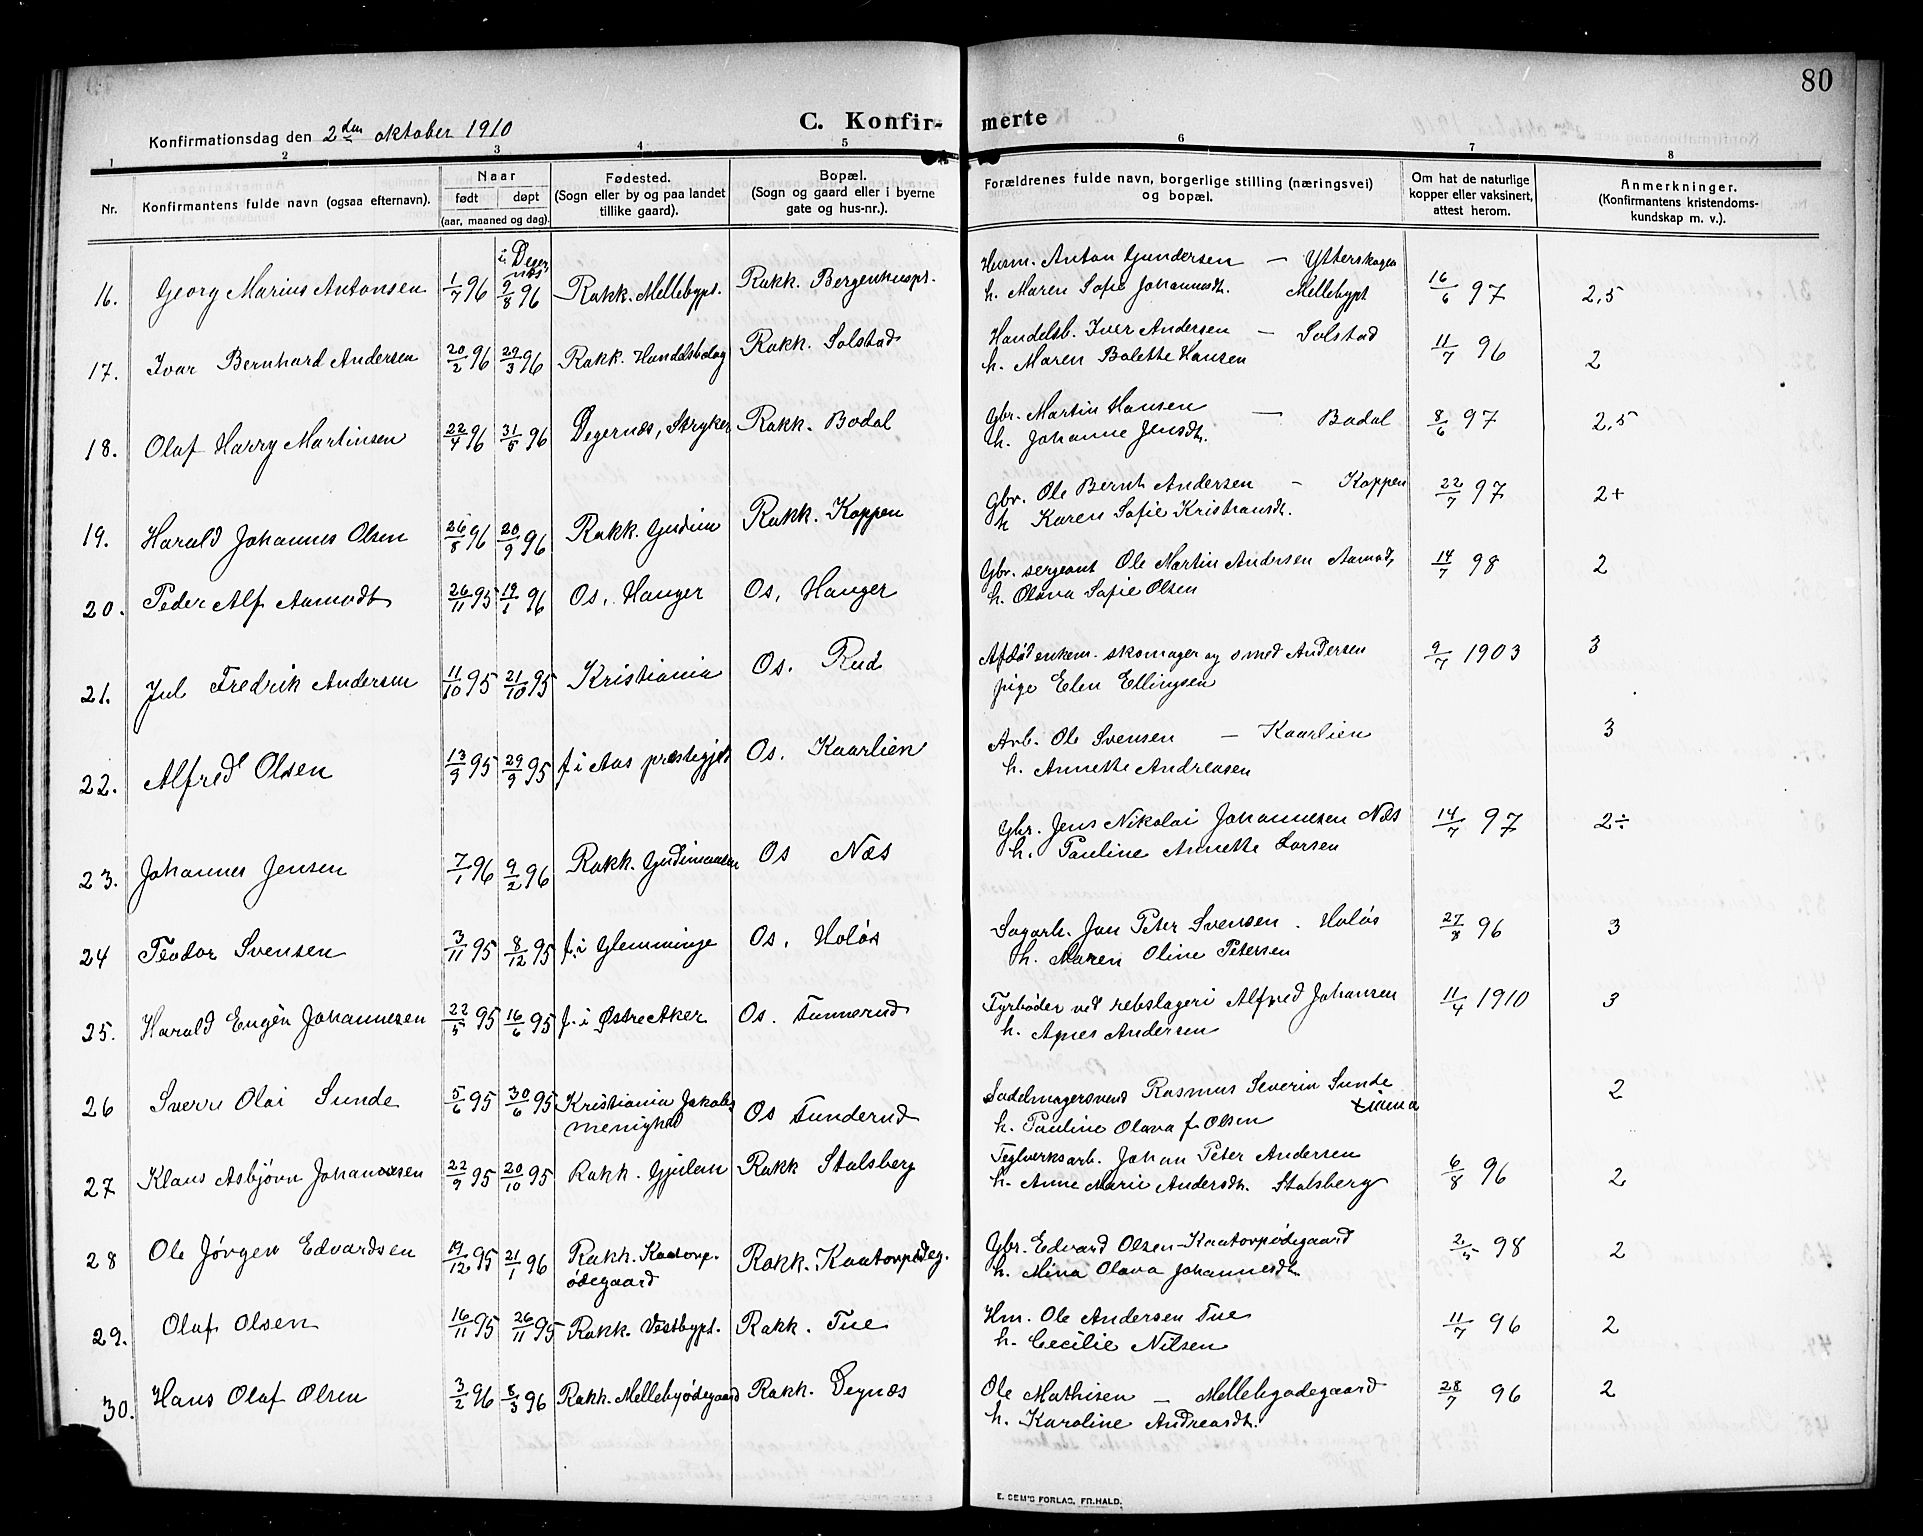 80
C. Konfirmerte
Konfirmationsdag den 2den oktober 1910
1 2 3 4 5 6 7 8
Nr. Konfirmantens fulde navn (ogsaa efternavn). Naar født døpt (aar, maaned og dag). Fødested. (Sogn eller by og paa landet tillike gaard). Bopæl. (Sogn og gaard eller i byerne gate og hus-nr.). Forældrenes fulde navn, borgerlige stilling (næringsvei) og bopæl. Om hat de naturlige kopper eller vaksinert, attest herom. Anmerkninger. (Konfirmantens kristendoms-kundskap m. v.).
16. Georg Marius Antonsen 1/7 96 i Degernæs 9/8 96 Rakk. Mellebypl. Rakk. Bergenhuspl. Husm. Anton Gundersen — Ytterskogen 16/6 97 2,5
h. Maren Sofie Johannesdt. Mellebypl
17. Ivar Bernhard Andersen 20/2 96 29/3 96 Rakk. Handelsbolag Rakk. Solstad Handelsb. Iver Andersen — Solstad 11/7 96 2
h. Maren Bolette Hansen
18. Olaf Harry Martinsen 22/4 96 31/5 96 Degernæs, Stryker Rakk. Bodal Gbr. Martin Hansen — Bodal 8/6 97 2,5
h. Johanne Jensdt.
19. Harald Johannes Olsen 26/8 96 20/9 96 Rakk. Gudim Rakk. Koppen Gbr. Ole Bernt Andersen - Koppen 22/7 97 2+
h Karen Sofie Kristiansdt.
20. Peder Alf Aamodt 26/11 95 19/1 96 Os, Hanger Os, Hanger Gbr. sergeant Ole Martin Andersen Aamodt, 14/7 98 2
h. Olava Sofie Olsen
21. Jul Fredrik Andersen 11/10 95 21/10 95 Kristiania Os. Rud Afdød enkem. skomager og smed Andersen 9/7 1903 3
pige Elen Ellingsen
22. Alfred Olsen 13/9 95 29/9 95 f. i Aas præstegjeld Os. Kaarlien Arb. Ole Svensen — Kaarlien 3
h. Annette Andreasen
23. Johannes Jensen 7/1 96 9/2 96 Rakk. Gudimaasen Os Næs Gbr. Jens Nikolai Johannesen Næs 14/7 97 2÷
h. Pauline Annette Larsen
24 Teodor Svensen 3/11 95 8/12 95 f. i Glemminge Os. Holøs Sagarb. Jan Peter Svensen. Holøs 27/8 96 3
h. Maren Oline Petersen
25. Harald Eugèn Johannesen 22/5 95 16/6 95 f. i Østre Aker Os. Tunnerud Fyrbøder ved rebslageri Alfred Johansen 11/4 1910 3
h. Agnes Andersen
26 Sverre Olai Sunde 5/6 95 30/6 95 Kristiania Jakobs menighed Os Tunderud Sadelmagersvend Rasmus Severin Sunde 2
h. Pauline Olava f. Olsen
27 Klaus Asbjørn Johannesen 22/9 95 20/10 95 Rakk. Gjulem Rakk Stalsberg Teglverksarb. Johan Peter Andersen 6/8 96 2
h. Anne Marie Andersdt. Stalsberg
28 Ole Jørgen Edvardsen 19/12 95 21/1 96 Rakk. Kaatorpødegaard Rakk. Kaatorpødeg. Gbr. Edvard Olsen-Kaatorpødegaard 2/5 98 2
h. Mina Olava Johannesdt.
29. Olaf Olsen 16/11 95 26/11 95 Rakk. Vestbypl. Rakk. Tue Hm. Ole Andersen Tue 11/7 96 2
h. Cecilie Nilsen
30. Hans Olaf Olsen 3/2 96 8/3 96 Rakk. Mellebyødegaard Rakk. Degnæs Ole Mathisen — Mellebyødegaard 28/7 96 2
h. Karoline Andreasdt.
E. SEM'S FORLAG, FR.HALD.